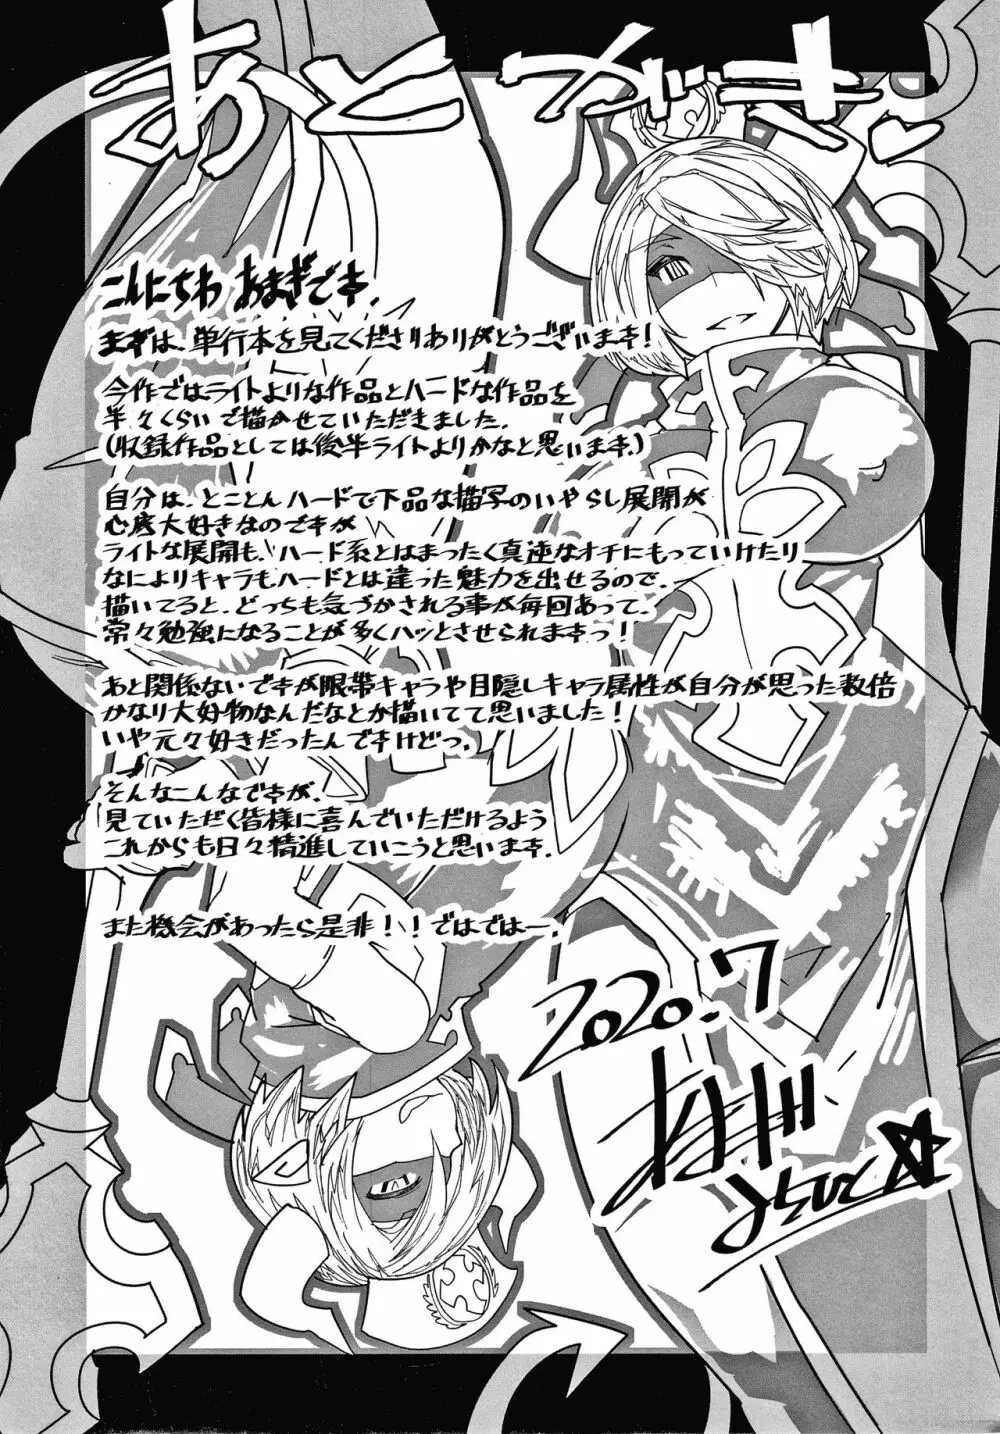 あとがき♡
こんにちわ あまぎです。
まずは、単行本を見てくださりありがとうございます!
今作ではライトよりな作品とハードな作品を
半々くらいで描かせていただきました。
(収録作品としては後半ライトよりかなと思います。)
自分は、とことんハードで下品な描写のいやらし展開が
心底大好きなのですが
ライトな展開も、ハード系とはまったく真逆なオチにもっていけたり
なによりキャラもハードとは違った魅力を出せるので、
描いてると、どっちも気づかされる事が毎回あって、
常々勉強になることが多くハッとさせられますっ!
あと関係ないですが眼帯キャラや目隠しキャラ属性が自分が思った数倍
かなり大好物なんだなとか描いてて思いました!
いや元々好きだったんですけどっ。
そんなこんなですが、
見ていただく皆様に喜んでいただけるよう
これからも日々精進していこうと思います。
また機会があったら是非!!ではではー。
2020.7